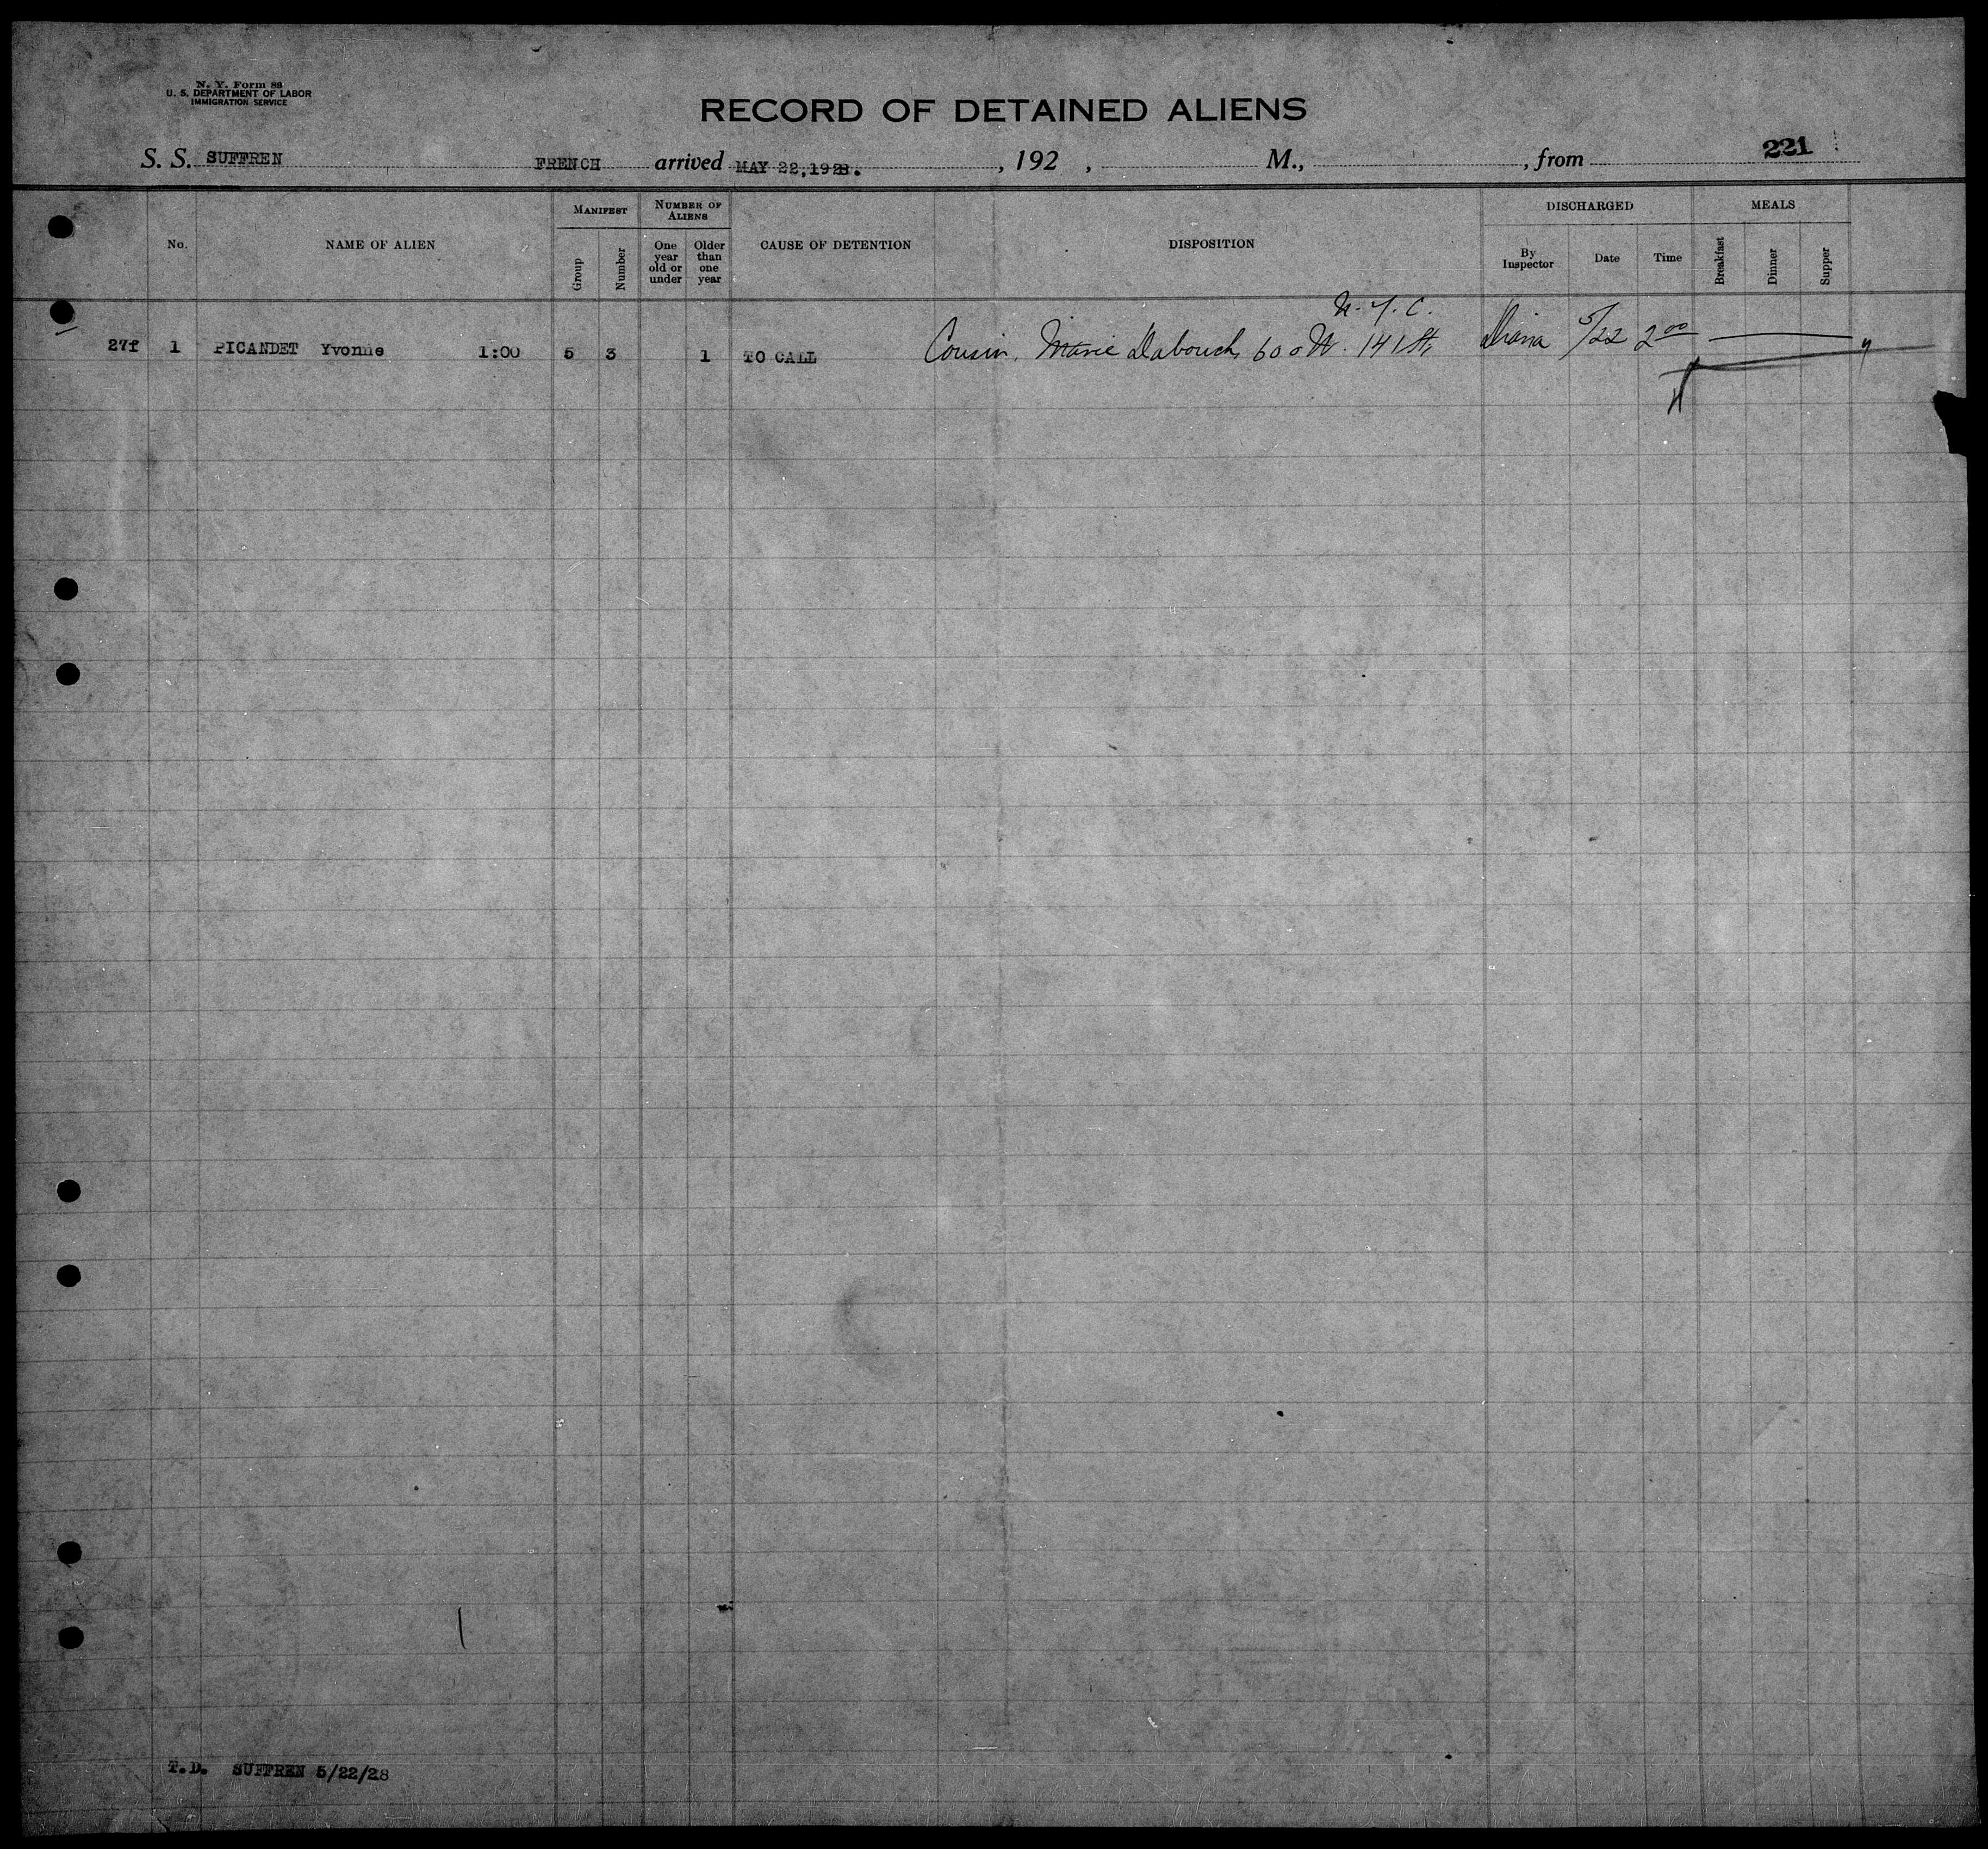 N. Y. Form 89
U. S. DEPARTMENT OF LABOR
IMMIGRATION SERVICE
RECORD OF DETAINED ALIENS
221
S. S. SUFFREN FRENCH arrived MAY 22,1928. , 192 , M., , from
No. NAME OF ALIEN MANIFEST NUMBER OF ALIENS CAUSE OF DETENTION DISPOSITION DISCHARGED MEALS
Group Number One year old or under Older than one year By Inspector Date Time Breakfast Dinner Supper
N.Y.C.
27f 1 PICANDET Yvonne 1:00 5 3 1 TO CALL Cousin, Marie 600 W. 141 St, 5/22 2 00
T.D. SUFFREN 5/22/28